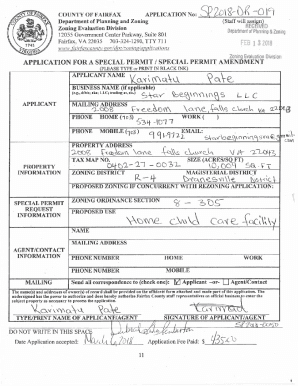 COUNTY OF FAIRFAX
APPLICATION No: SP 2018-DR-019
Department of Planning and Zoning
(Staff will assign)
Zoning Evaluation Division
RECEIVED
Department of Planning & Zoning
12055 Government Center Parkway, Suite 801
FEB 13 2018
Fairfax, VA 22035 703-324-1290, TTY 711
www.fairfaxcounty.gov/dpz/zoning/applications
Zoning Evaluation Division
APPLICATION FOR A SPECIAL PERMIT / SPECIAL PERMIT AMENDMENT
(PLEASE TYPE or PRINT IN BLACK INK)
APPLICANT
APPLICANT NAME Karimatu Pate
BUSINESS NAME (if applicable)
Star Beginnings LLC
MAILING ADDRESS
2008 Freedom lane, falls church VA 22043
PHONE HOME ( ) WORK ( )
534-8277
PHONE MOBILE
EMAIL:
PROPERTY INFORMATION
PROPERTY ADDRESS
2008 Freedom lane falls church VA 22043
TAX MAP NO.
SIZE (ACRES/SQ FT)
0402-27-0032
10,009 SQ.FT
ZONING DISTRICT
MAGISTERIAL DISTRICT
R-4
Dranesville District
PROPOSED ZONING IF CONCURRENT WITH REZONING APPLICATION:
SPECIAL PERMIT REQUEST INFORMATION
ZONING ORDINANCE SECTION
8-305
PROPOSED USE
Home child care facility
AGENT/CONTACT INFORMATION
NAME
MAILING ADDRESS
PHONE NUMBER HOME WORK
PHONE NUMBER MOBILE
MAILING
Send all correspondence to (check one): Applicant –or– Agent/Contact
The name(s) and addresses of owner(s) of record shall be provided on the affidavit form attached and made part of this application. The undersigned has the power to authorize and does hereby authorize Fairfax County staff representatives on official business to enter the subject property as necessary to process the application.
Karimatu Pate
TYPE/PRINT NAME OF APPLICANT/AGENT
SIGNATURE OF APPLICANT/AGENT
DO NOT WRITE IN THIS SPACE
Date Application accepted:
Application Fee Paid: $ 435.00
11